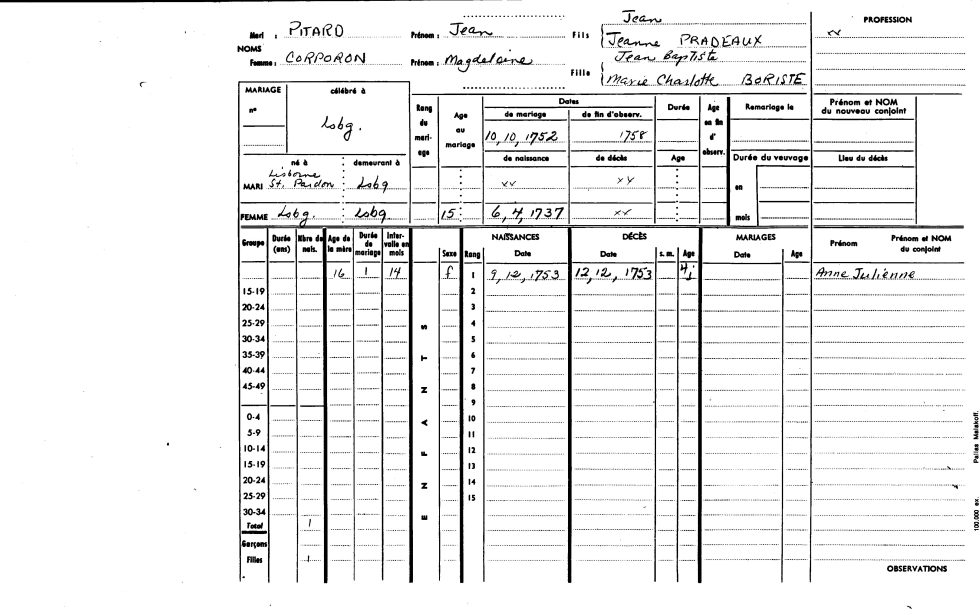 Jean
Mari : PITARD Prénom : Jean Fils Jeanne PRADEAUX PROFESSION
NOMS
Femme : CORPORON Prénom : Magdelaine Fille Jean Baptiste
Marie Charlotte BORISTE
MARIAGE célébré à Rang du mariage Age au mariage Dates Durée Age en fin d'observ. Remariage le Prénom et NOM du nouveau conjoint
n° Lsbg. de mariage de fin d'observ.
10, 10, 1752 1758
né à demeurant à de naissance de décès Age Durée du veuvage Lieu du décès
MARI Lisborne St. Pardon Lsbg xx xx en
FEMME Lsbg. Lsbg 15 6, 4, 1737 xx mois
Groupe Durée (ans) Nbre de nais. Age de la mère Durée de mariage Intervalle en mois ENFANTS Sexe Rang NAISSANCES Date DÉCÈS Date s. m. Age MARIAGES Date Age Prénom Prénom et NOM du conjoint
16 1 14 f 1 9, 12, 1753 12, 12, 1753 4j Anne Julienne
15-19 2
20-24 3
25-29 4
30-34 5
35-39 6
40-44 7
45-49 8
9
0-4 10
5-9 11
10-14 12
15-19 13
20-24 14
25-29 15
30-34
Total 1
Garçons
Filles 1
OBSERVATIONS
100.000 ex. Pallas Malakoff.